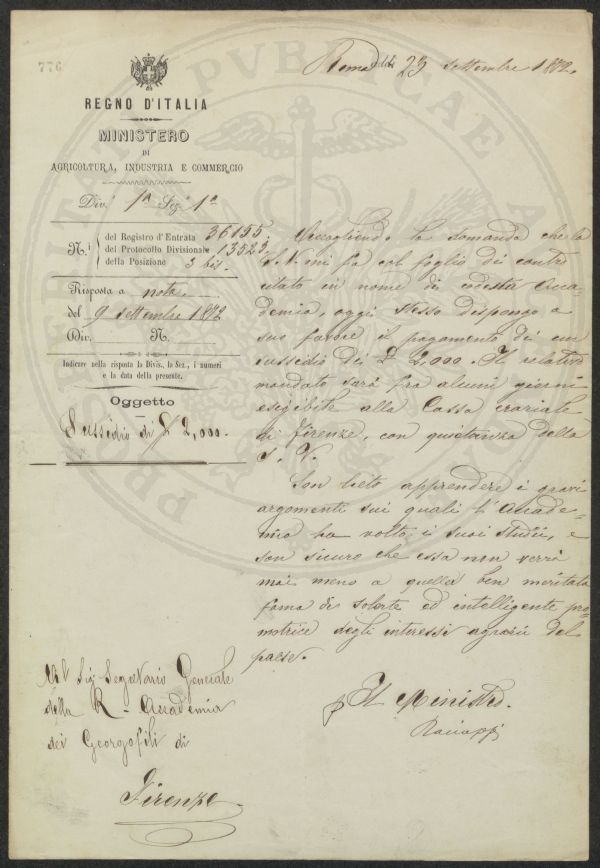 776
Roma addì 23 settembre 1872.
REGNO D'ITALIA
MINISTERO
DI
AGRICOLTURA, INDUSTRIA E COMMERCIO
Div.e 1a Sez.e 1a
N.i
del Registro d'Entrata 36155
del Protocollo Divisionale 13523
della Posizione 3 bis.
Risposta a nota
del 9 settembre 1872
Div. N.
Indicare nella risposta la Divis., la Sez., i numeri
e la data della presente.
Oggetto
Sussidio di £ 2,000.
Accogliendo la domanda che la
S. V. mi fa col foglio di contro
citato in nome di codesta Acca-
demia, oggi stesso dispongo a
suo favore il pagamento di un
sussidio di £ 2,000. Il relativo
mandato sarà fra alcuni giorni
esigibile alla Cassa erariale
di Firenze, con quietanza della
S. V.
Son lieto apprendere i gravi
argomenti sui quali l'Accade-
mia ha volto i suoi studii, e
son sicuro che essa non verrà
mai meno a quella ben meritata
fama di solerte ed intelligente pro-
motrice degli interessi agrarii del
paese.
p Il Ministro.
Racioppi
Al Sig. Segretario Generale
della R. Accademia
dei Georgofili di
Firenze
PVBLICAE
PROSPERITATI